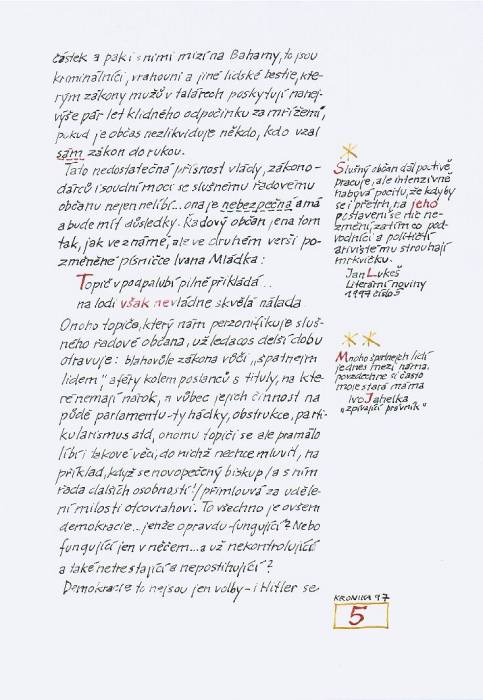 částek a pak i s nimi mizí na Bahamy, to jsou
kriminálníci, vrahouni a jiné lidské bestie, kte-
rým zákony mužů v talárech poskytují nanej-
výše pár let klidného odpočinku za mřížemi,
pokud je občas nezlikviduje někdo, kdo vzal
sám zákon do rukou.
Tato nedostatečná přísnost vlády, zákono-
dárců i soudní moci se slušnému řadovému
občanu nejen nelíbí... ona je nebezpečná a má
a bude mít důsledky. Řadový občan je na tom
tak, jak ve známé, ale ve druhém verši po-
změněné písničce Ivana Mládka:
Topič v podpalubí pilně přikládá...
na lodi však nevládne skvělá nálada
Onoho topiče, který nám perzonifikuje sluš-
ného řadové občana, už ledacos delší dobu
otravuje: blahovůle zákona vůči „špatnejm
lidem", aféry kolem poslanců s tituly, na kte-
ré nemají nárok, a vůbec jejich činnost na
půdě parlamentu - ty hádky, obstrukce, parti-
kularismus atd, onomu topiči se ale pramálo
líbí i takové věci, do nichž nechce mluvit, na
příklad, když se novopečený biskup /a s ním
řada dalších osobností!/ přimlouvá za uděle-
ní milosti otcovrahovi. To všechno je ovšem
demokracie... jenže opravdu - fungující? Nebo
fungující jen v něčem... a už nekontrolující
a také netrestající a nepostihující?
Demokracie to nejsou jen volby - i Hitler se
Slušný občan dál poctivě
pracuje, ale intenzivně
nabývá pocitu, že kdyby
se i přetrh, na jeho
postavení se nic ne-
změní, zatím co pod-
vodníci a političtí
arivisté mu strouhají
mrkvičku.
Jan Lukeš
Literární noviny
1997 číslo 5
Mnoho špatnejch lidí
jednes mezi náma,
povzdechne si často
moje stará máma
Ivo Jahelka
„zpívající právník"
KRONIKA 97
5